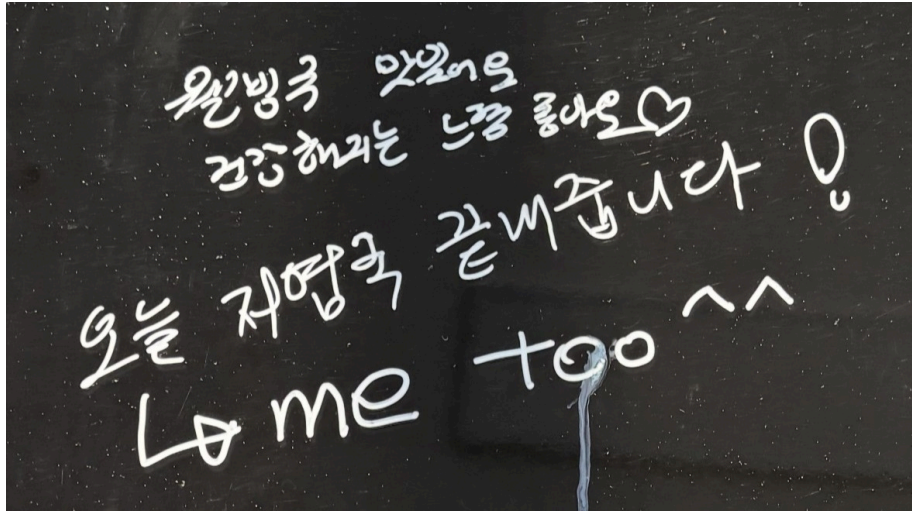 웰빙국 맛있어요
건강해지는 느낌 좋아요♡
오늘 저염국 끝내줍니다!
↳ me too ^^